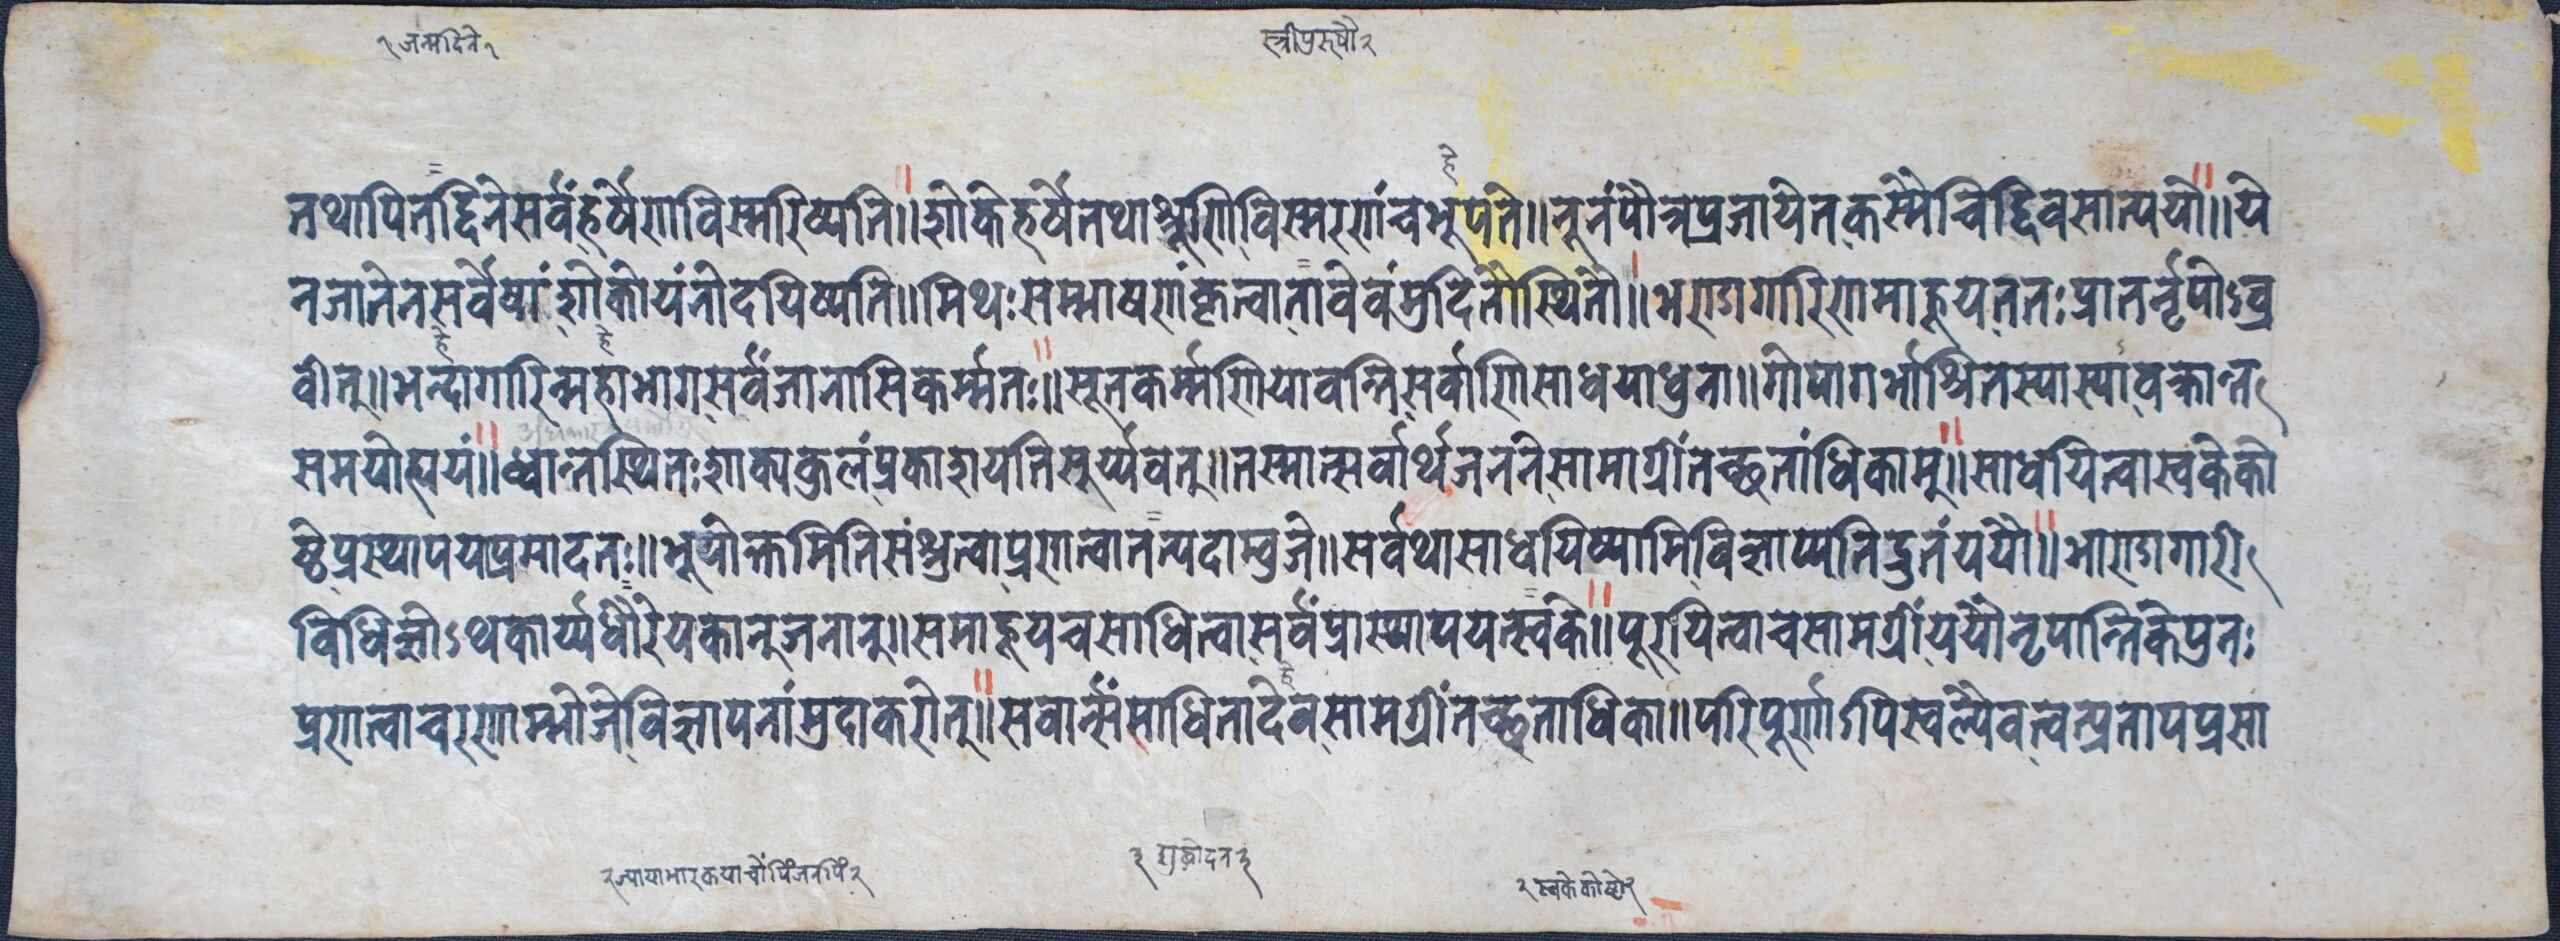 १ जन्मदिने १
स्त्रीपुरुषौ २
तथापि तद्दिने सर्वं हर्षेण विस्मरिष्यति॥ शोके हर्षे तथाश्रूणि विस्मरणं च भूपते॥ नूनं पौत्र प्रजायेत कस्मैचिद्दिवसात्यये॥ ये
न जातेन सर्वेषां शोकोयं नोदयिष्यति॥ मिथः सम्भाषणं कृत्वा तावेवं मुदितौ स्थितौ॥ भण्डागारिणमाहूय ततः प्रातर्नृपोऽब्र
वीत्॥ भन्दागारिन्महाभाग सर्वं जानासि कर्म्मतः॥ सूतकर्म्मणि यावन्ति सर्वाणि साधयाधुना॥ गोपागर्भाश्रितस्यास्या वक्रान्त
समयोह्ययं॥ ध्वान्तस्थितः शाक्यकुलं प्रकाशयति सूर्य्यवत्॥ तस्मात्सर्वार्थजनने सामाग्रीं तच्छतांधिकाम्॥ साधयित्वा स्वके को
ष्ठे प्रस्थापय प्रमादतः॥ भूपोक्तमिति संश्रुत्वा प्रणत्वा तत्पदाम्बुजे॥ सर्वथा साधयिष्यामि विज्ञाप्यति द्रुतं ययौ॥ भाण्डागारी
विधिज्ञोऽथ कार्य्यधौरेयकान् जनान्॥ समाहूय च साधित्वा सर्वं प्रास्थापयत्स्वके॥ पूरयित्वा च सामग्रीं ययौ नृपान्तिके पुनः
प्रणत्वा चरणाम्भोजे विज्ञापनां मुदाकरोत्॥ सर्वार्न्सं साधिता देव सामग्रीं तच्छताधिका॥ परिपूर्णाऽपि स्वल्पैव त्वत्प्रताप प्रसा
३ शुद्धोदन ३
२ स्वके कोष्ठे २